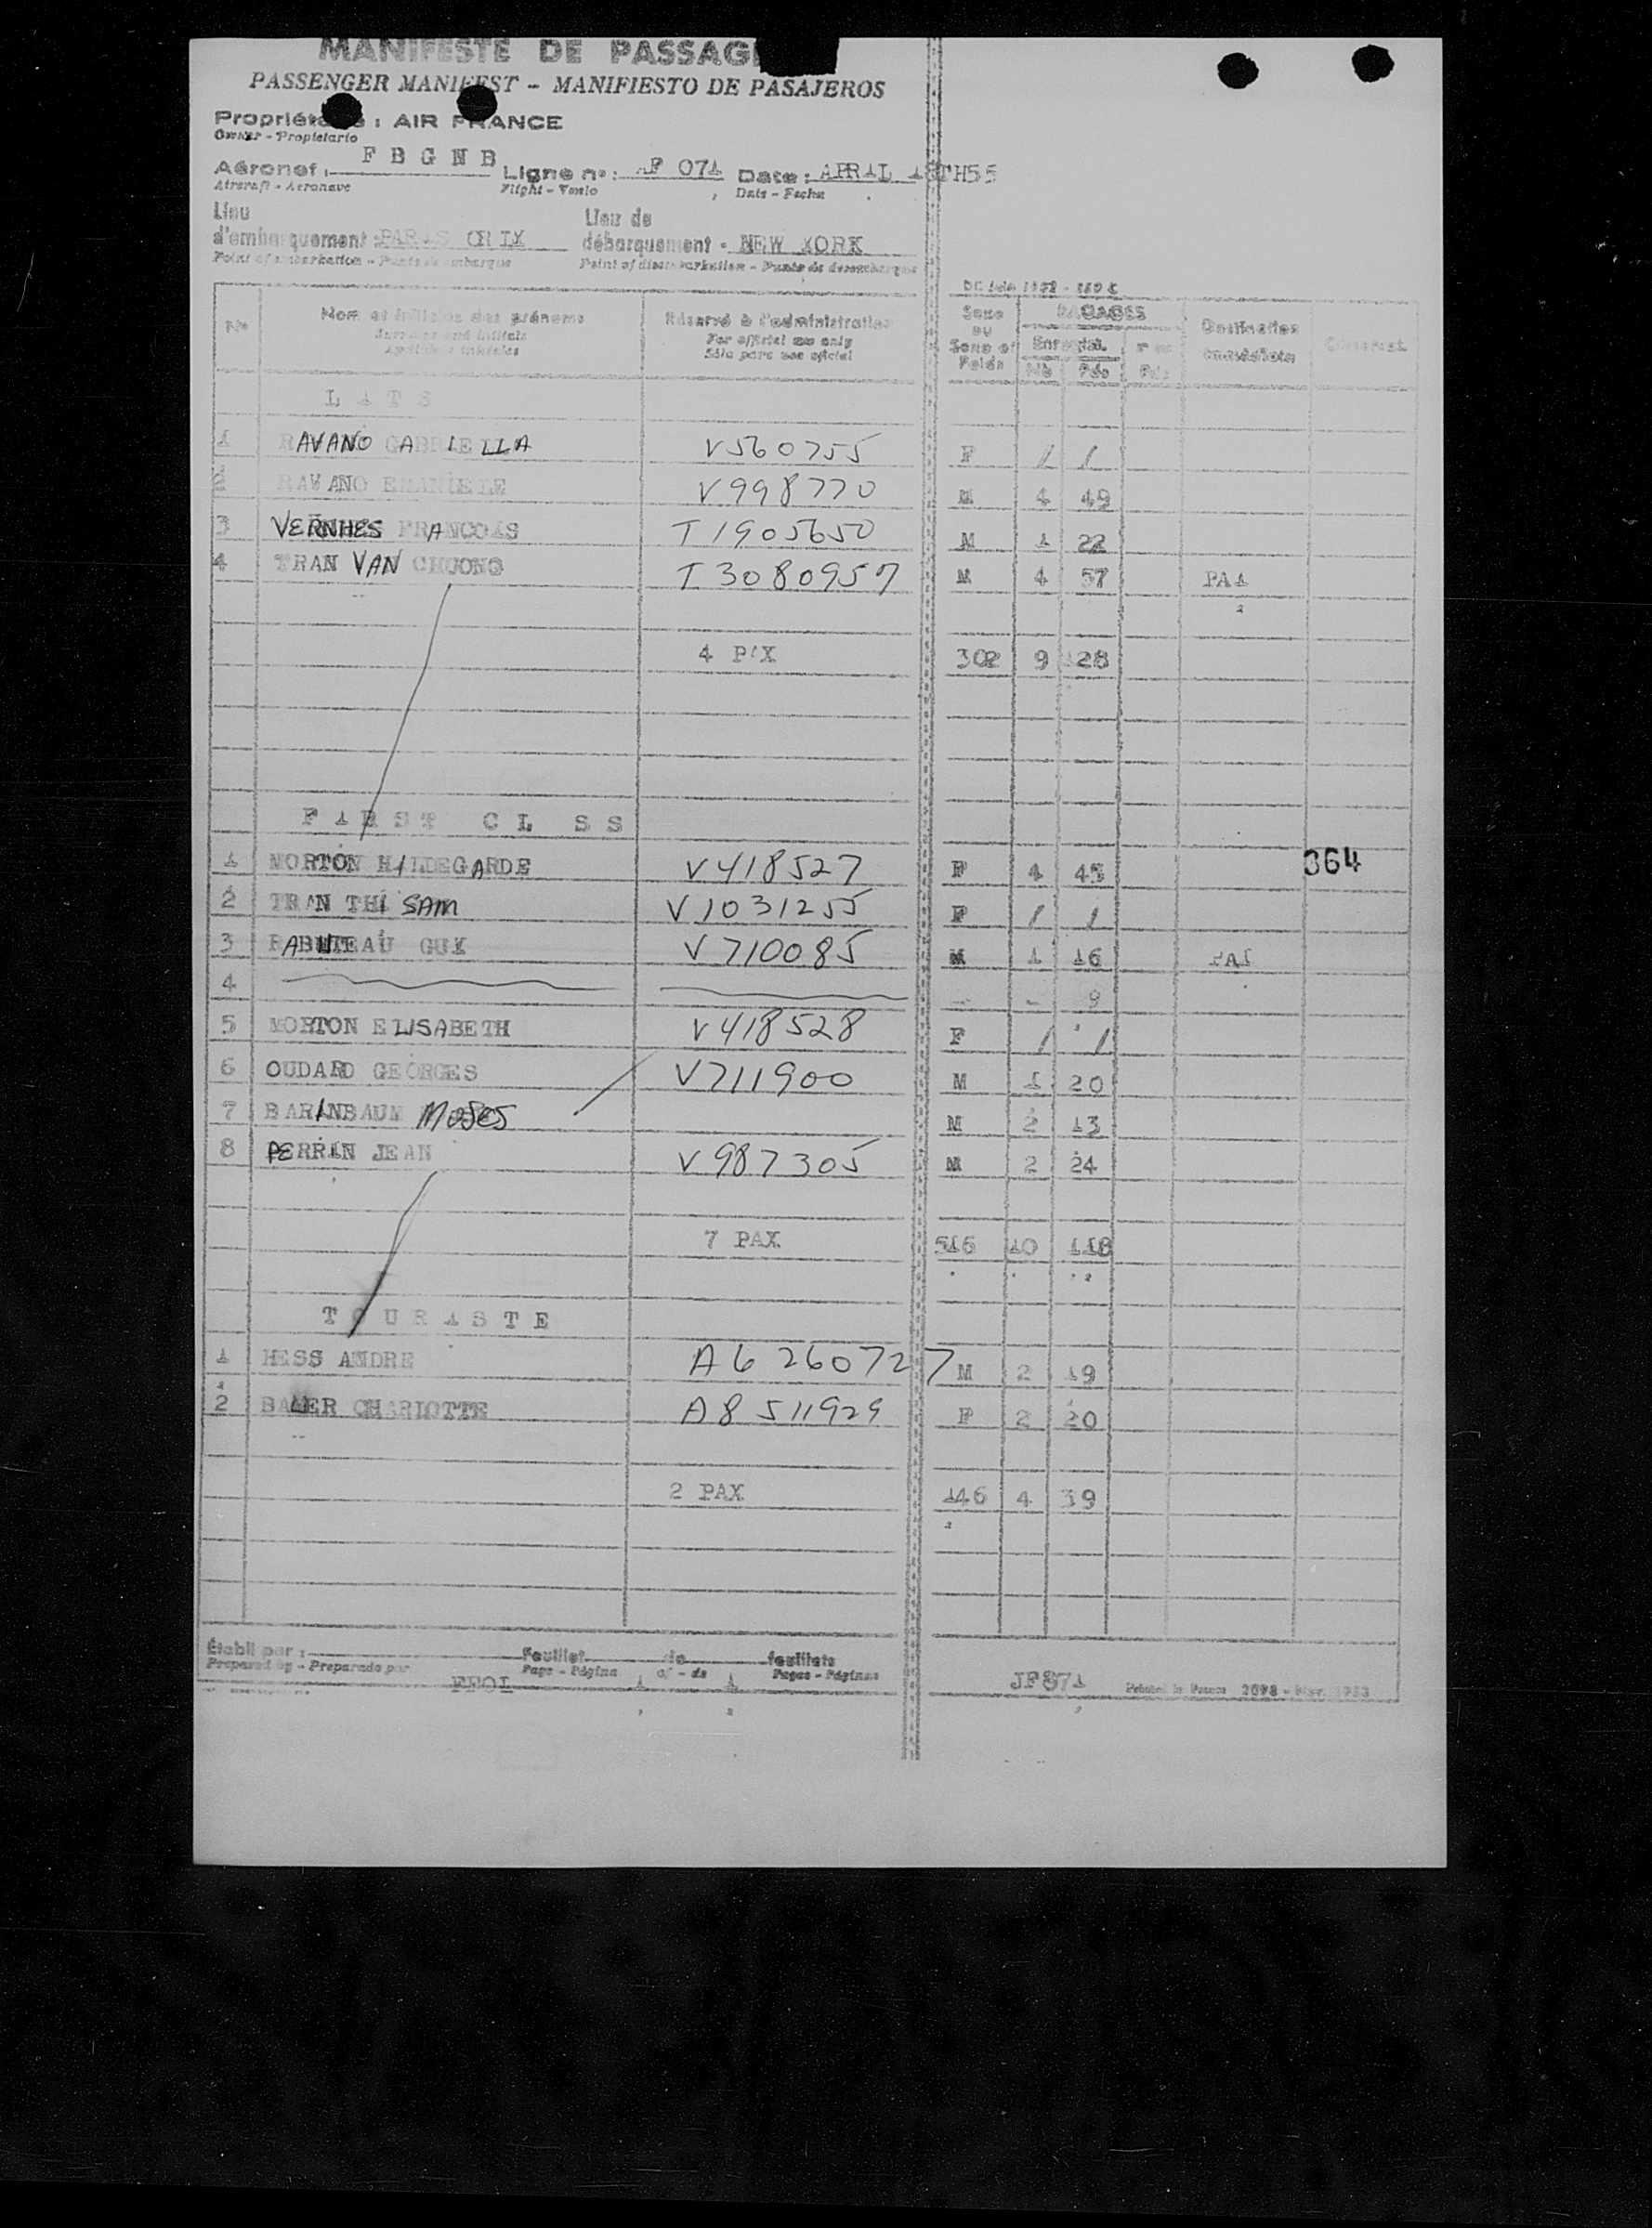 MANIFESTE DE PASSAG
PASSENGER MANIFEST - MANIFIESTO DE PASAJEROS
Propriéta : AIR FRANCE
Owner - Propietario
Aéronef : F B G N B Ligne n° : AF 071 Date : APRIL 18TH55
Aircraft - Aeronave Flight - Vuelo Date - Fecha
Lieu Lieu de
d'embarquement : PARIS ORLY débarquement - NEW YORK
Point of embarkation - Punto de embarque Point of disembarkation - Punto de desembarque
Nos Nom et initiales des prénoms Réservé à l'administration Sexe BAGAGES Destination
Surname and initials For official use only ou Enregist.
Apellido e iniciales Sólo para uso oficial Sexe of Nb Pds
1 RAVANO GABRIELLA V560755 F / /
2 RAVANO EMANUELE V998770 M 4 49
3 VERNHES FRANCOIS T1905650 M 1 22
4 TRAN VAN CHUONG T3080957 M 4 57 PAI
4 PAX 302 9 128
FIRST CL SS
1 MORTON HILDEGARDE V418527 F 4 45 364
2 TRAN THI SAM V1031255 F / /
3 RABUTEAU GUY V710085 M 1 16 PAI
4
5 MORTON ELISABETH V418528 F / /
6 OUDARD GEORGES V711900 M 1 20
7 BARINBAUM MOSES M 2 13
8 PERRIN JEAN V987305 M 2 24
7 PAX 516 10 118
TOURISTE
1 HESS ANDRE A6 260727 M 2 19
2 BAUER CHARLOTTE A8 511929 F 2 20
2 PAX 146 4 39
Établi par : Feuillet de feuillets
Prepared by - Preparado por Page - Página 1 of - de 1 Pages - Páginas
JF871 Printed in France 2098